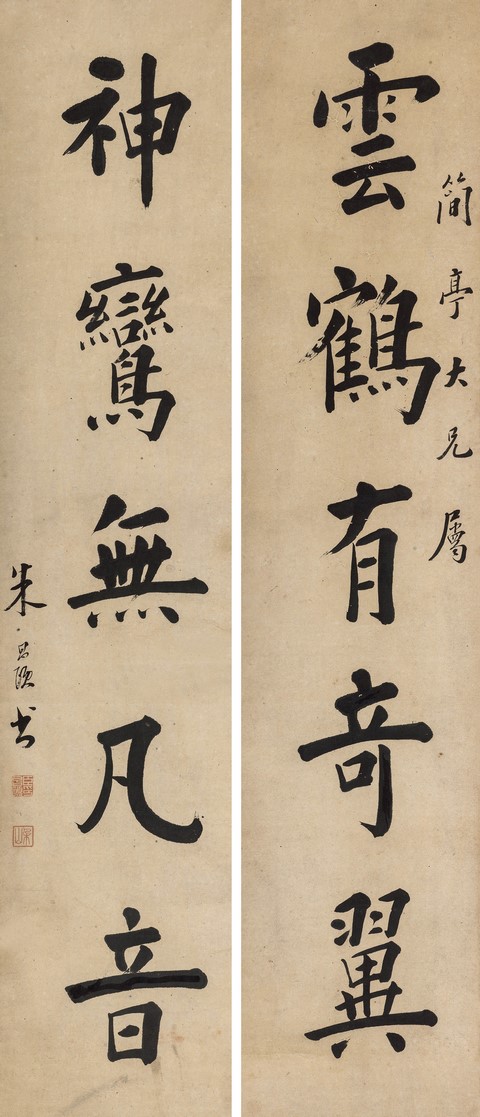 簡亭大兄屬
雲鶴有竒翼
神鸞無凡音
朱昌頤書